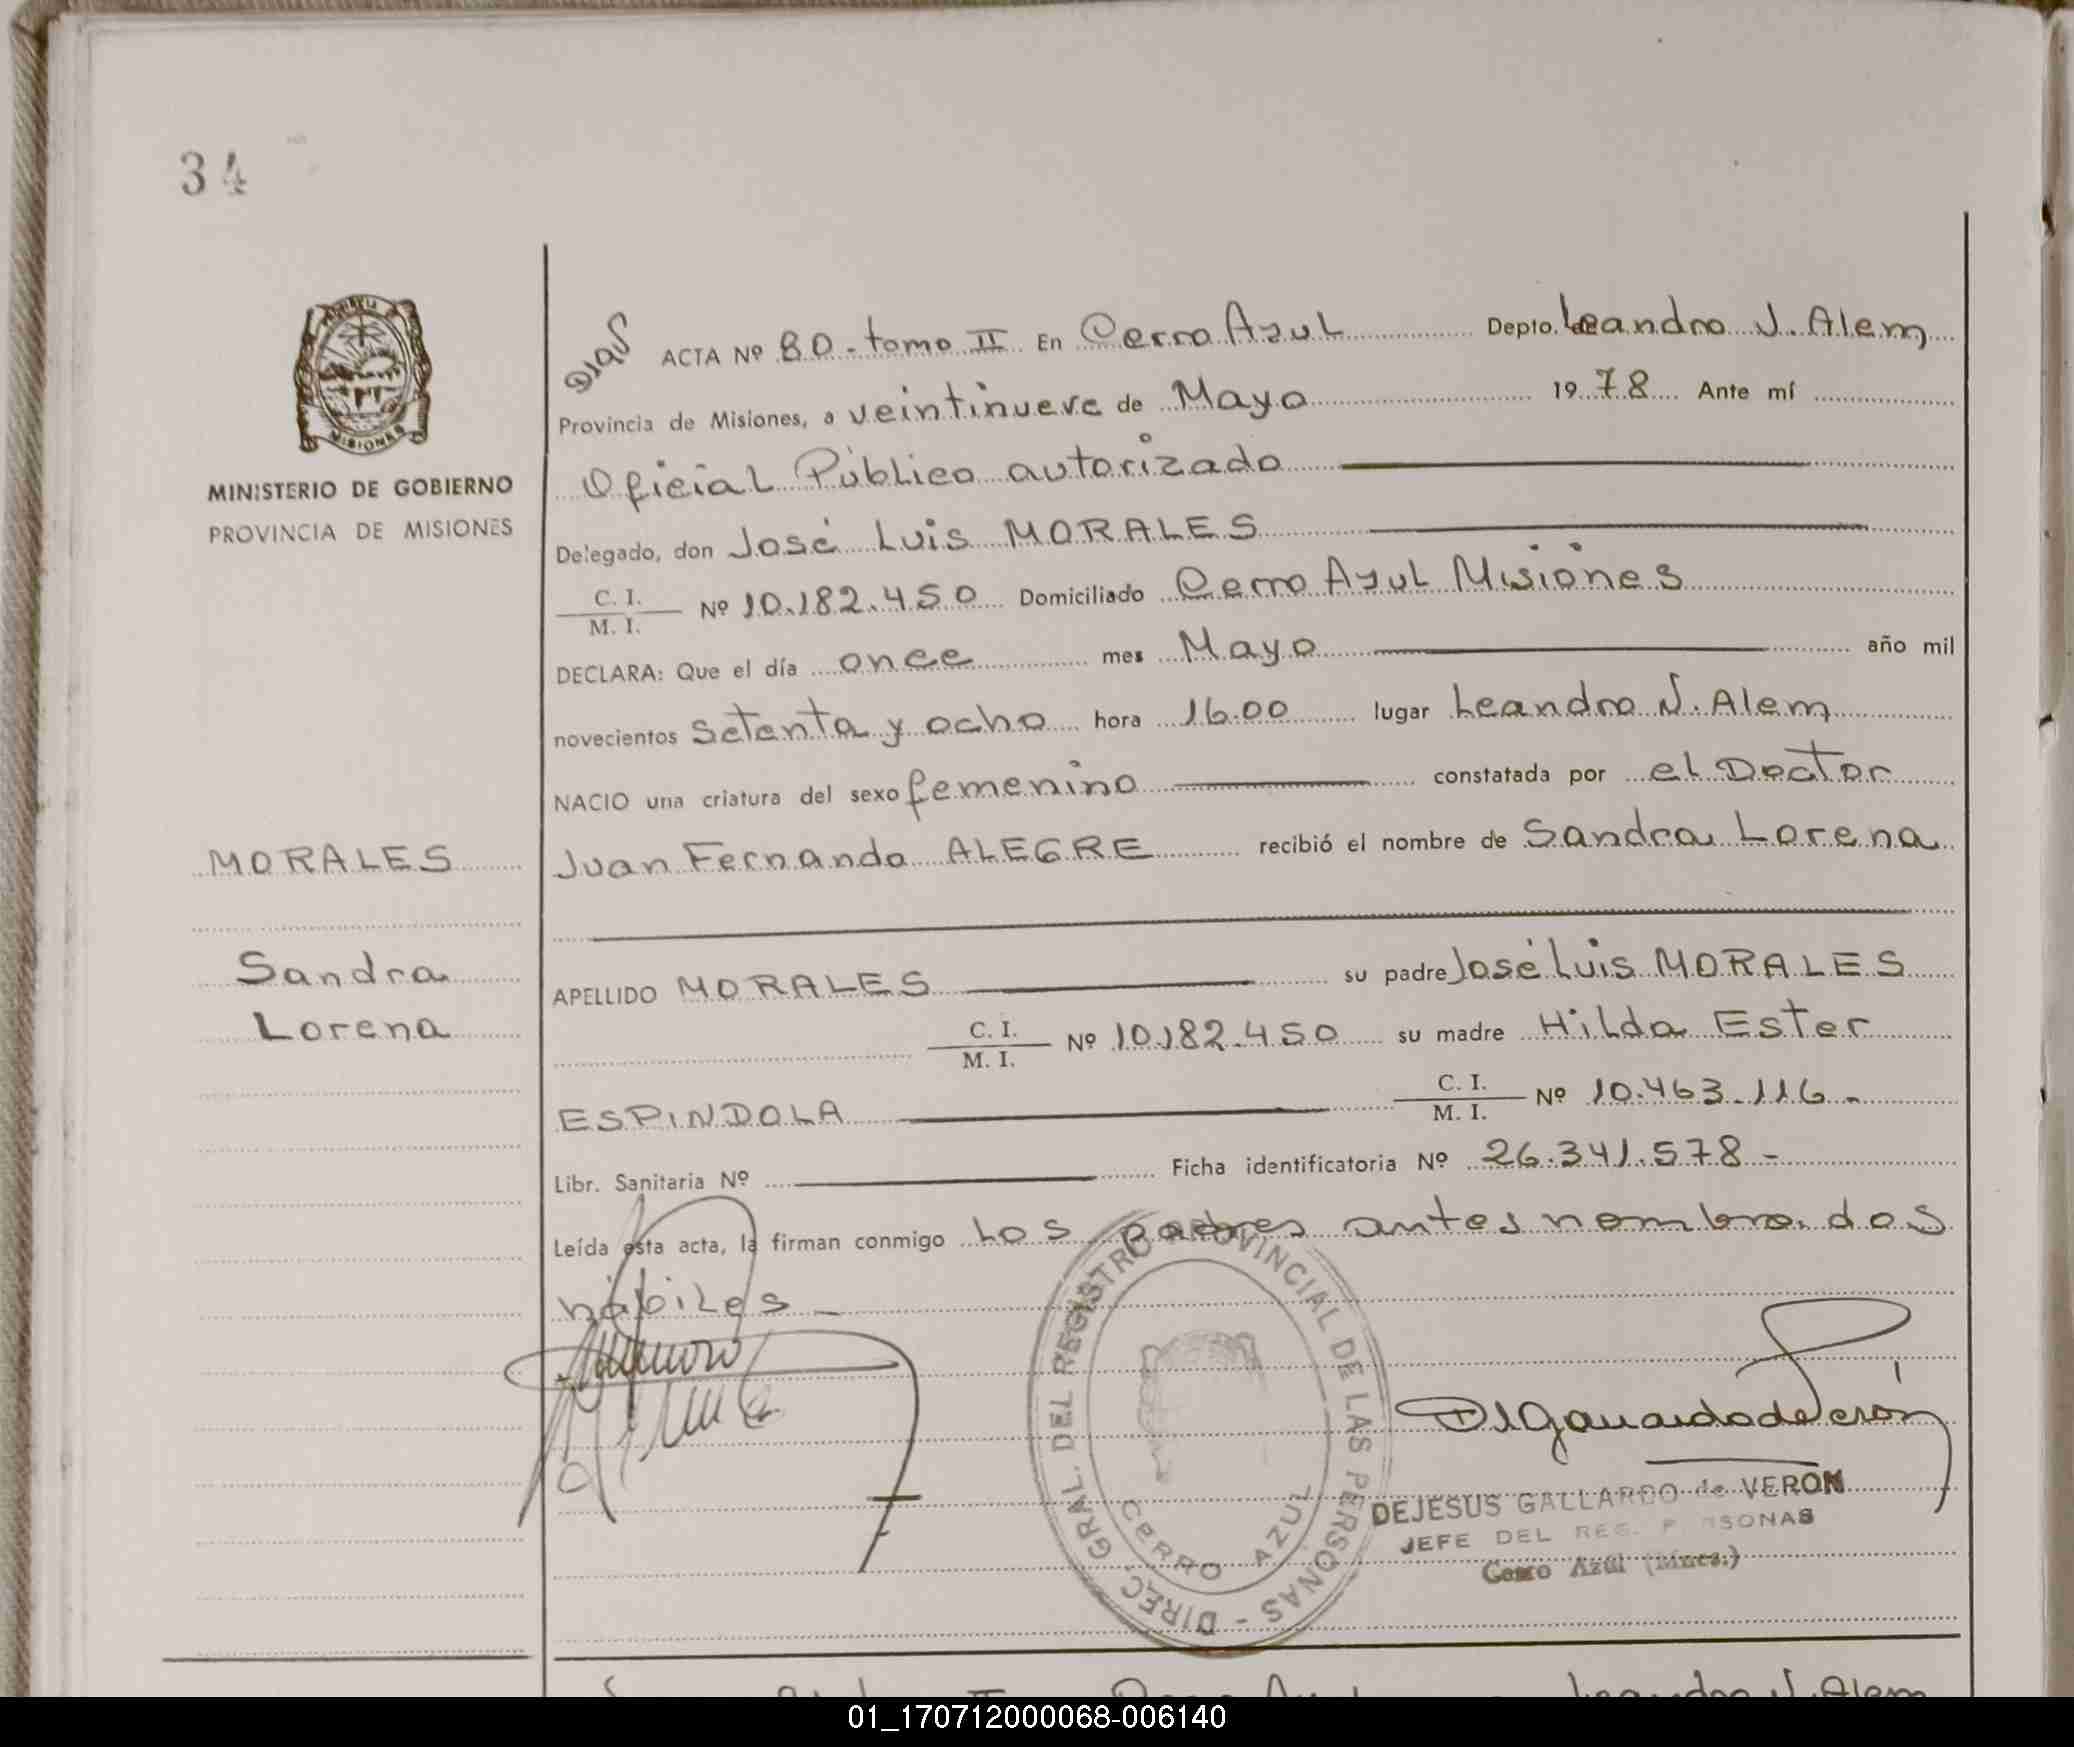 34
MISIONES
MINISTERIO DE GOBIERNO
PROVINCIA DE MISIONES
MORALES
Sandra
Lorena
ACTA Nº 80 - tomo II En Cerro Azul Depto. Leandro N. Alem
Provincia de Misiones, a veintinueve de Mayo 1978 Ante mí
Oficial Público autorizado
Delegado, don José Luis MORALES
C. I.
M. I. Nº 10.182.450 Domiciliado Cerro Azul Misiones
DECLARA: Que el día once mes Mayo año mil
novecientos setenta y ocho hora 16.00 lugar Leandro N. Alem
NACIO una criatura del sexo femenino constatada por el Doctor
Juan Fernando ALEGRE recibió el nombre de Sandra Lorena
APELLIDO MORALES su padre José Luis MORALES
C. I.
M. I. Nº 10.182.450 su madre Hilda Ester
ESPINDOLA C. I.
M. I. Nº 10.463.116.-
Libr. Sanitaria Nº Ficha identificatoria Nº 26.341.578-
Leída esta acta, la firman conmigo los padres antes nombrados
hábiles -
DIREC. GRAL. DEL REGISTRO PROVINCIAL DE LAS PERSONAS -
CERRO AZUL
DEJESUS GALLARDO de VERON
JEFE DEL REG. PERSONAS
Cerro Azul (Mnes.)
Leandro N. Alem
01_170712000068-006140